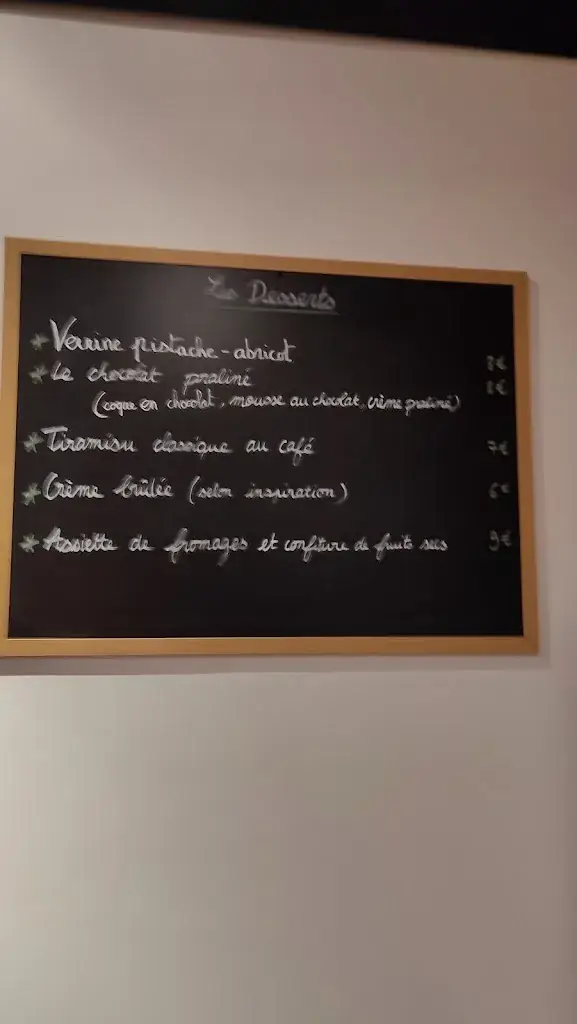 Les Desserts
* Verrine pistache-abricot 8€
* Le chocolat praliné 8€
(coque en chocolat, mousse au chocolat, crème praliné)
* Tiramisu classique au café 7€
* Crème brûlée (selon inspiration) 6€
* Assiette de fromages et confiture de fruits secs 9€